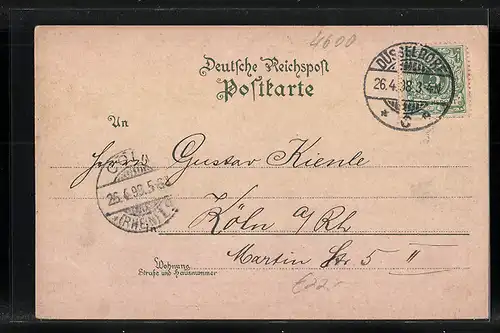 4600
Deutsche Reichspost
Postkarte
DÜSSELDORF
26.4.98.3-4N
* C *
An
Herrn Gustav Kienle
26.4.98.5-6
(RHEIN)
Köln a/Rh
Martin Str. 5 II
Wohnung
Straße und Hausnummer